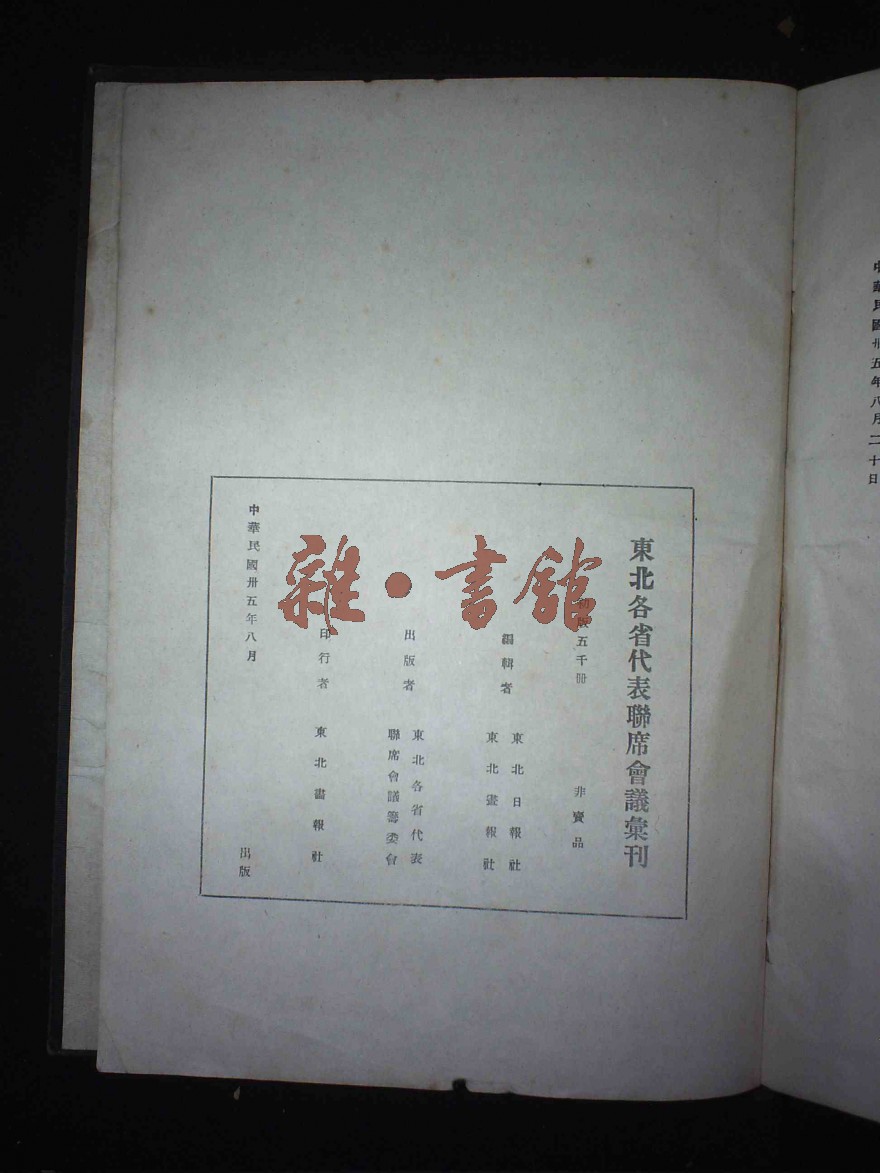 中華民國卅五年八月二十日
東北各省代表聯席會議彙刊
初版五千冊 非賣品
編輯者 東北日報社
東北畫報社
出版者 東北各省代表
聯席會議籌委會
印行者 東北畫報社
中華民國卅五年八月 出版
雜·書館